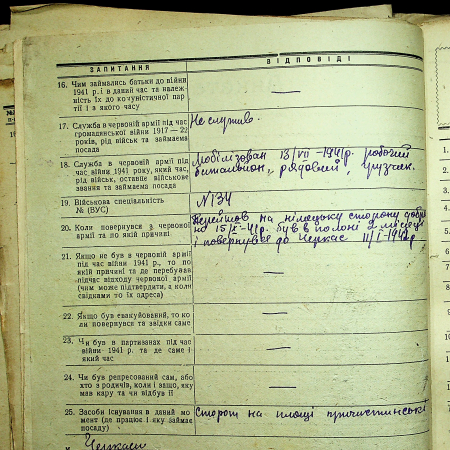 ЗАПИТАННЯ ВІДПОВІДІ
16. Чим займались батьки до війни
1941 р. і в даний час та належ-
ність їх до комуністичної пар-
тії і з якого часу
—
17. Служба в червоній армії під час
громадянської війни 1917 — 22
років, рід військ та займаєма
посада
Не служив.
18. Служба в червоній армії під
час війни 1941 року, який час,
рід військ, останнє військове
звання та займаєма посада
Мобілізован 13/VII -1941р. робочий
батальйон, рядовий, грузчик.
19. Військова спеціальність
№ (ВУС)
№134
20. Коли повернувся з червоної
армії та по якій причині
Перейшов на німецьку сторону добро
но 15/X-41р. був в полоні 2 місяці
і повернувся до Черкас 11/I-1942р
21. Якщо не був в червоній армії
під час війни 1941 р., то по
якій причині та де перебував
підчас відходу червоної армії
(чим може підтвердити, а коли
свідками то їх адреса)
—
22. Якщо був евакуйований, то ко
ли повернувся та звідки саме
—
23. Чи був в партизанах під час
війни 1941 р. та де саме і
який час
—
24. Чи був репресований сам, або
хто з родичів, коли і защо, яку
мав кару та чи відбув її
—
25. Засоби існування в даний мо
мент (де працює і яку займає
посаду)
Сторож на площі
Черкаси